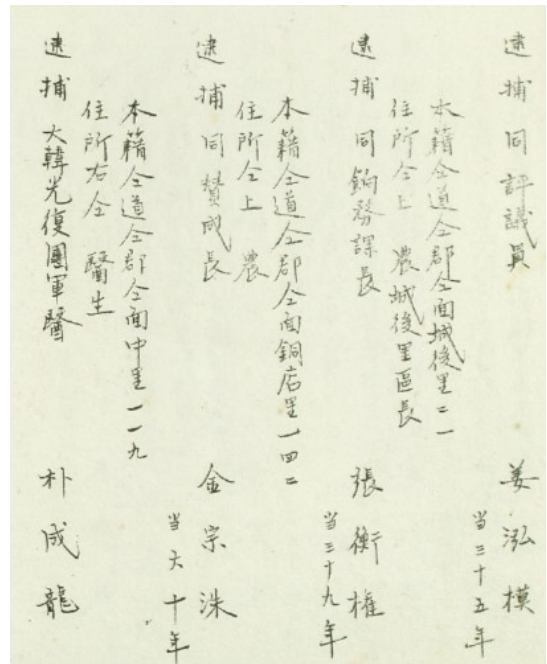 逮捕 同評議員 姜泓模
当三十五年
本籍仝道仝郡仝面城後里二一
住所仝上 農 城後里區長
逮捕 同鈎務課長 張衡権
当三十九年
本籍仝道仝郡仝面銅店里一四二
住所仝上 農
逮捕 同賛成長 金宗洙
当六十年
本籍仝道仝郡仝面中里一一九
住所右仝 醫生
逮捕 大韓光復團軍醫 朴成龍